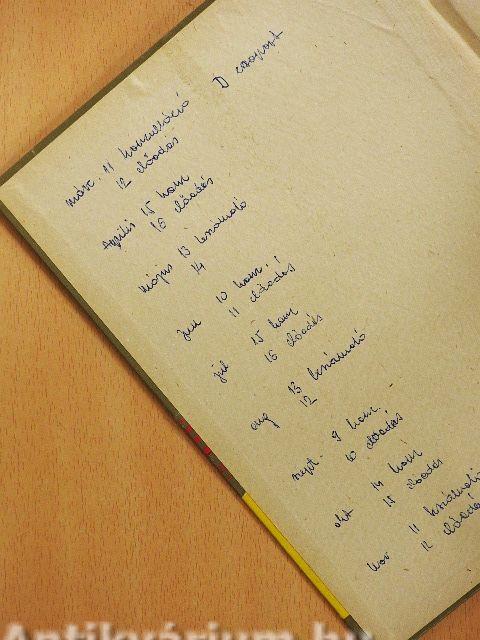 D csoport
márc. 11 konzultáció
12 előadás
Április 15 konz
16 előadás
május 13 beszámoló
14
jun 10 konz.
11 előadás
júl 15 konz
16 előadás
aug 13 beszámoló
12
szept. 9 konz.
10 előadás
okt 14 konz
15 előadás
nov 11 beszámoló
12 előadás
Antikvárium.hu